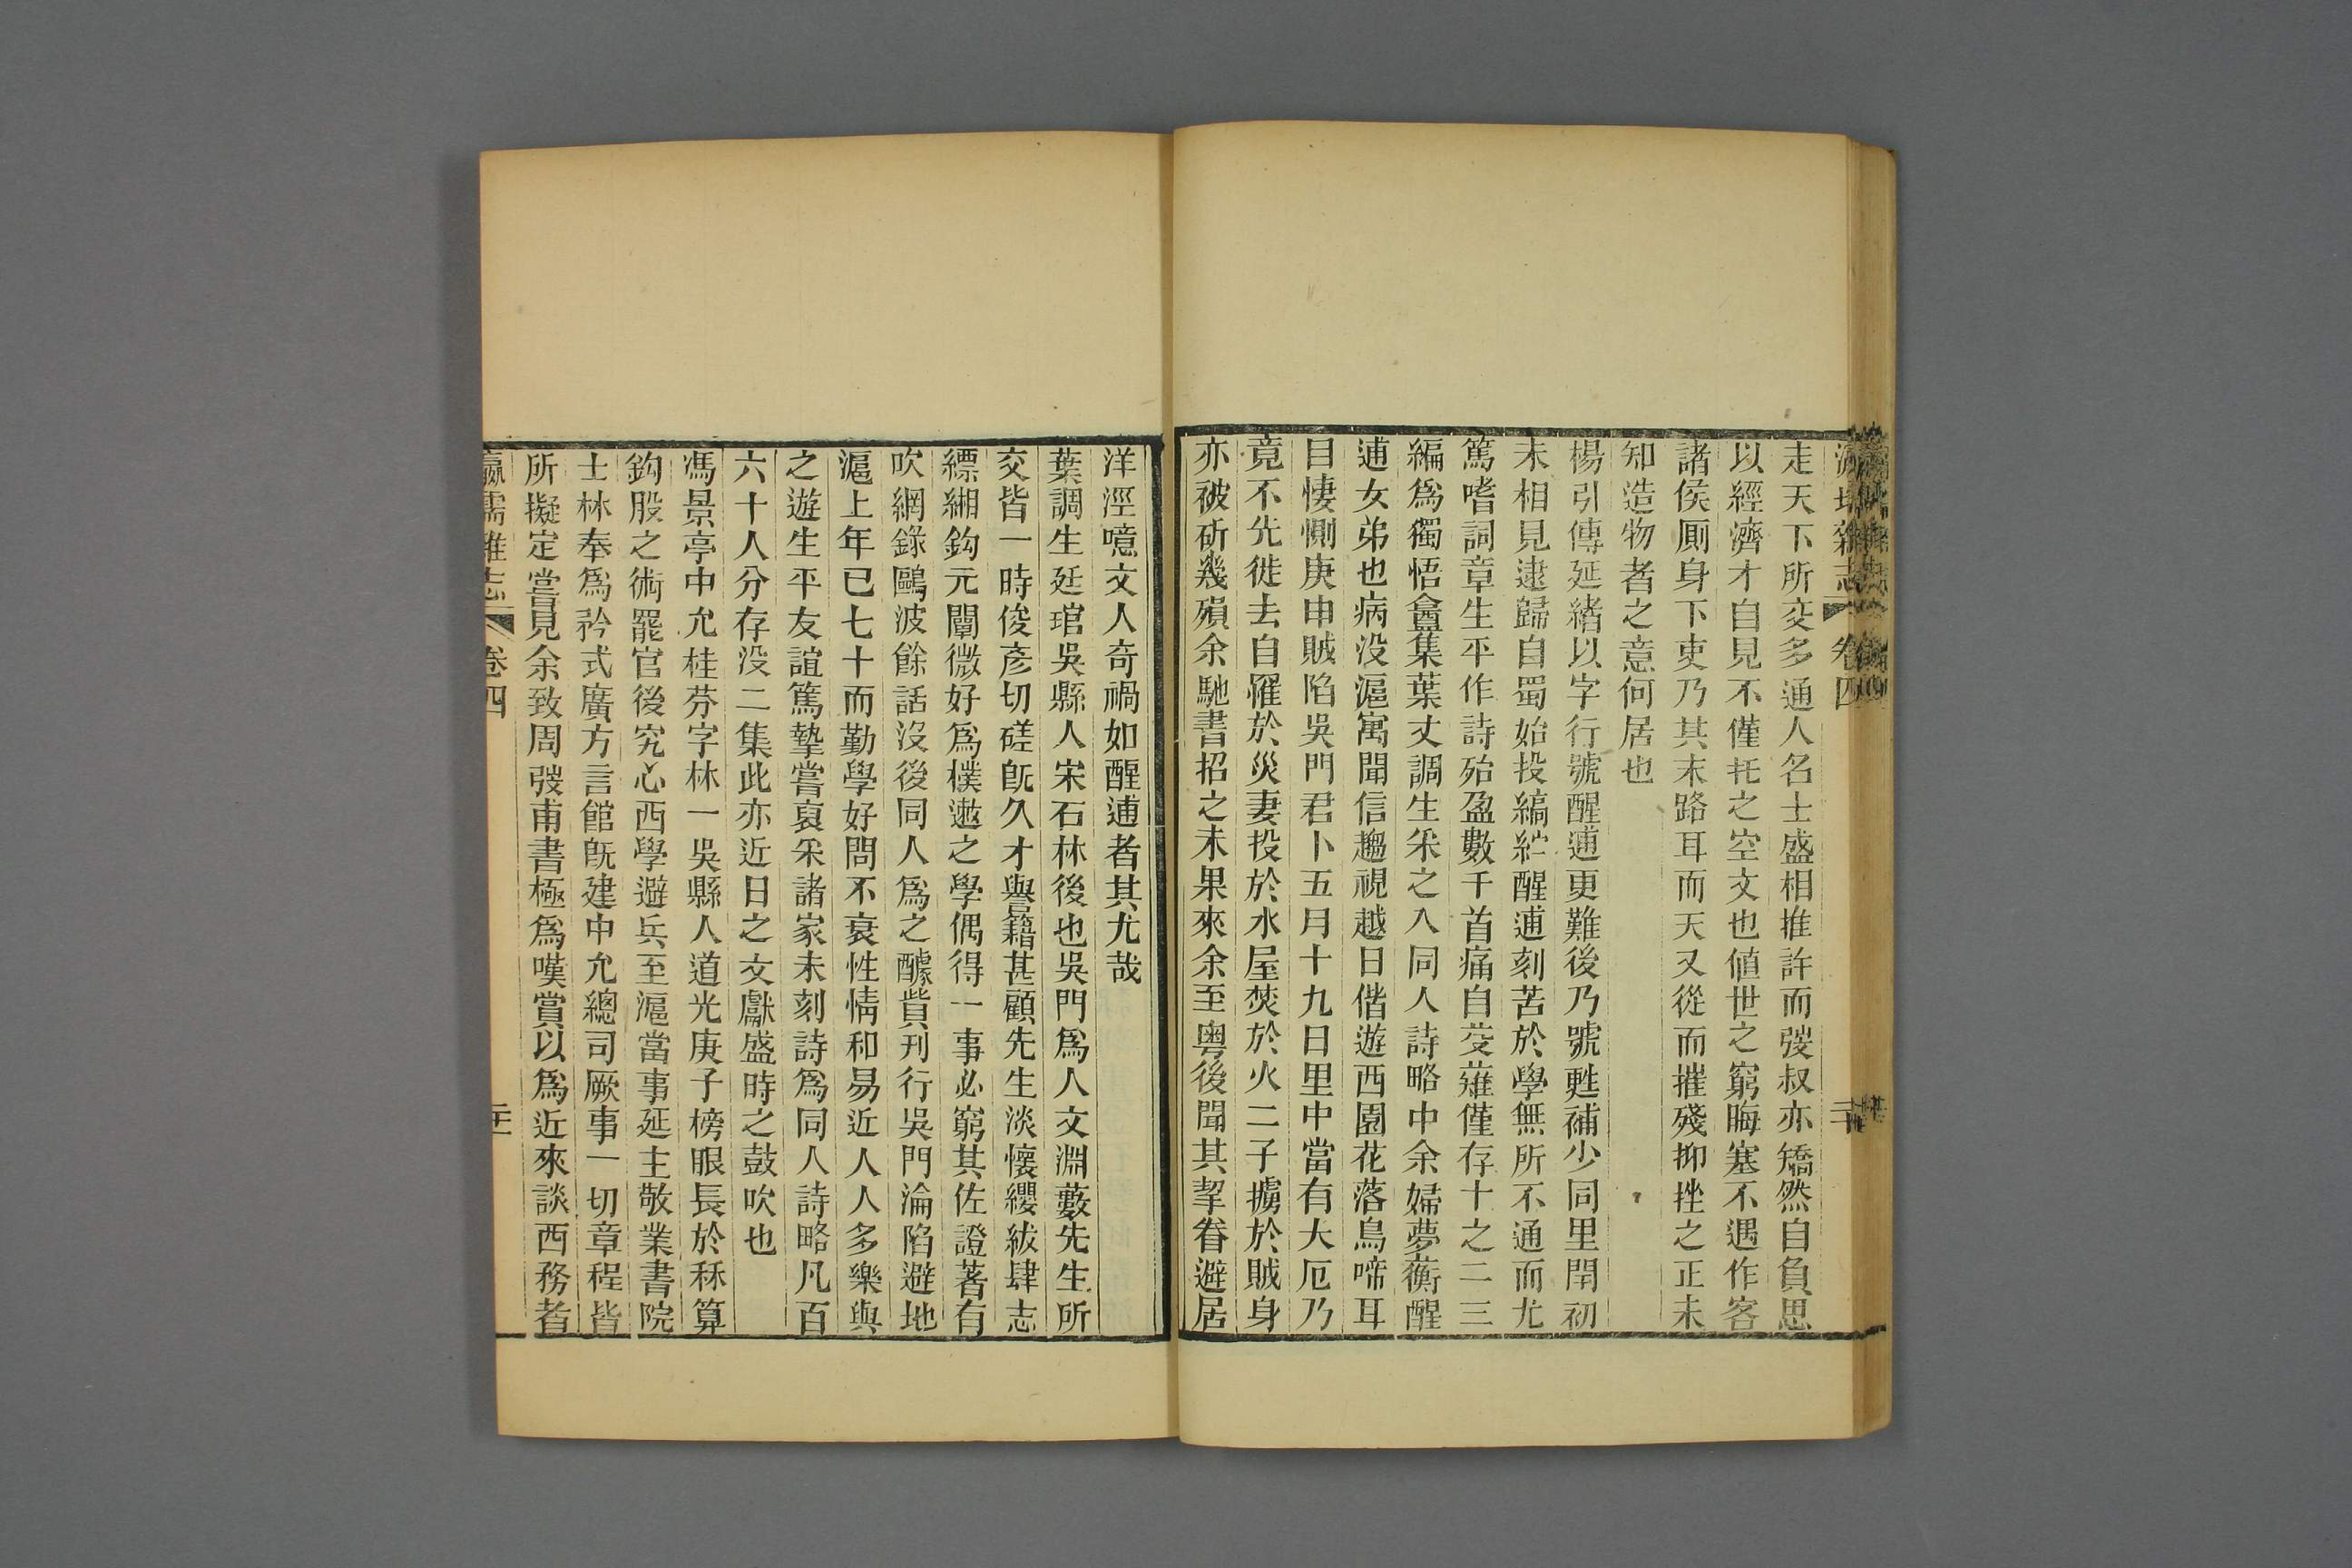 走天下所交多通人名士盛相推許而弢叔亦矯然自負思
以經濟才自見不僅托之空文也值世之窮晦塞不遇作客
諸侯厠身下吏乃其末路耳而天又從而摧殘抑挫之正未
知造物者之意何居也
楊引傳延緒以字行號醒逋更難後乃號甦補少同里閈初
未相見逮歸自蜀始投縞紵醒逋刻苦於學無所不通而尤
篤嗜詞章生平作詩殆盈數千首痛自芟薙僅存十之二三
編爲獨悟盦集葉丈調生采之入同人詩略中余婦夢蘅醒
逋女弟也病没滬寓聞信趨視越日偕遊西園花落鳥啼耳
目悽惻庚申賊陷吳門君卜五月十九日里中當有大厄乃
竟不先徙去自罹於災妻投於水屋焚於火二子擄於賊身
亦被斫幾殞余馳書招之未果來余至粵後聞其挈眷避居
洋涇噫文人奇禍如醒逋者其尤哉
葉調生廷琯吳縣人宋石林後也吳門爲人文淵藪先生所
交皆一時俊彥切磋旣久才譽籍甚顧先生淡懷纓紱肆志
縹緗鈎元闡微好爲樸遬之學偶得一事必窮其佐證著有
吹網錄鷗波餘話沒後同人爲之醵貲刊行吳門淪陷避地
滬上年已七十而勤學好問不衰性情和易近人人多樂與
之遊生平友誼篤摯嘗裒采諸家未刻詩爲同人詩略凡百
六十人分存没二集此亦近日之文獻盛時之鼓吹也
馮景亭中允桂芬字林一吳縣人道光庚子榜眼長於秝算
鈎股之術罷官後究心西學避兵至滬當事延主敬業書院
士林奉爲矜式廣方言館旣建中允總司厥事一切章程皆
所擬定嘗見余致周弢甫書極爲嘆賞以爲近來談西務者
瀛壖雜志 卷四